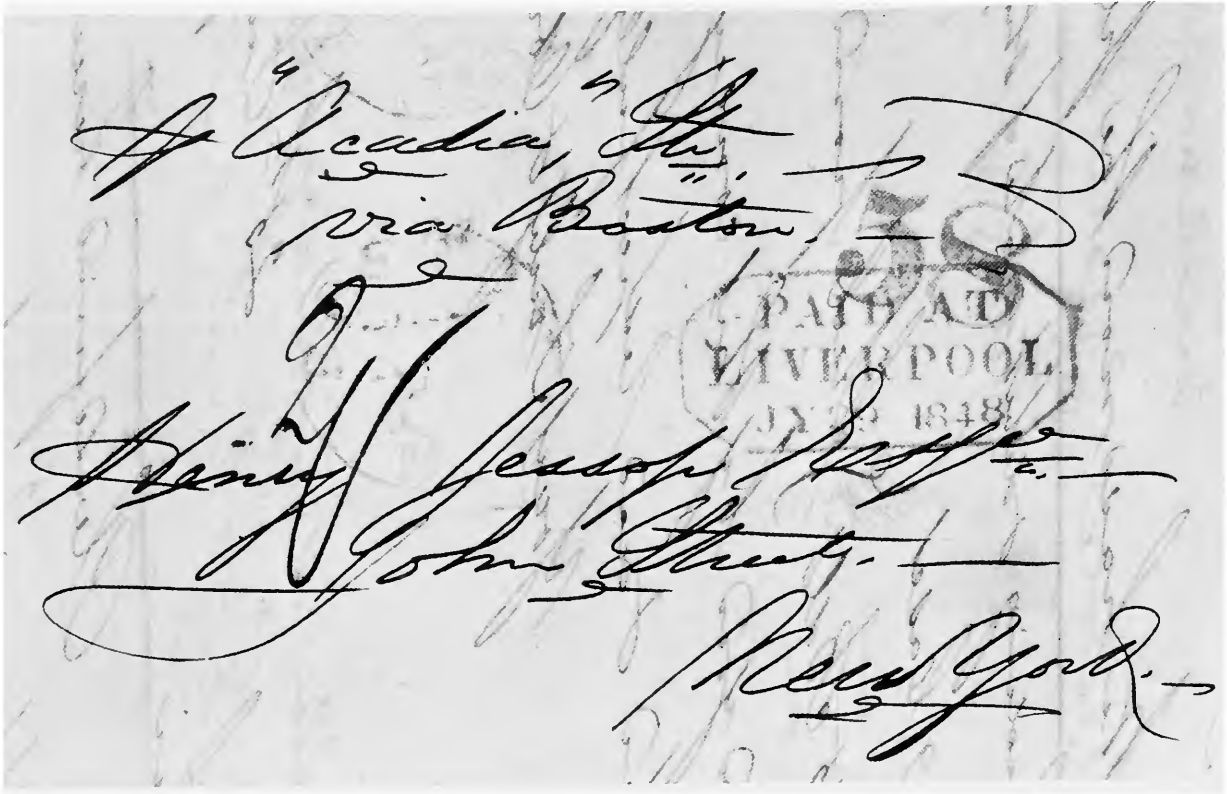 p "Acadia," Str.
via Boston.
38
PAID AT
LIVERPOOL
1848
Henry Jessop Esqre.
John Street.
New York.